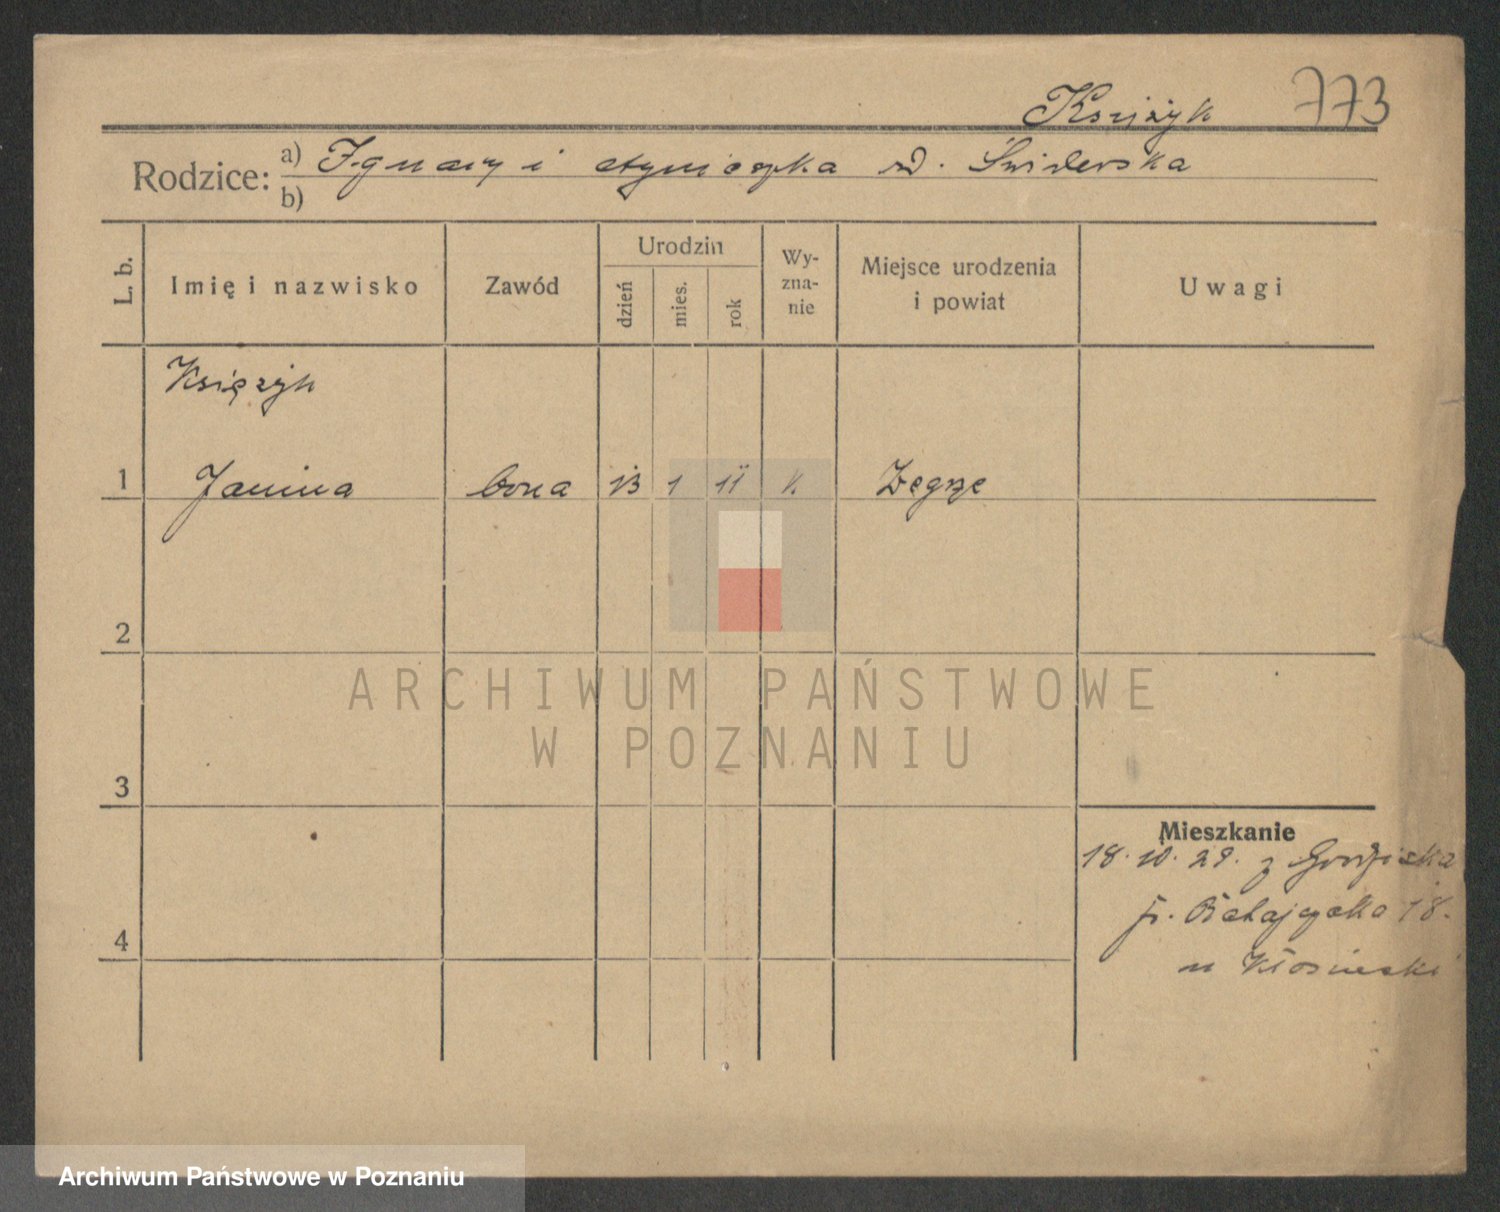 Księżyk 773
Rodzice: a) Ignacy i Agnieszka zd. Świderska
b)
L. b. Imię i nazwisko Zawód Urodzin dzień mies. rok Wy-zna-nie Miejsce urodzenia i powiat Uwagi
Księżyk
1 Janina bona 13 1 11 k. Zegrze
2
ARCHIWUM PAŃSTWOWE
W POZNANIU
3
Mieszkanie
18. 10. 29. z Grodziska
18.
4
u Kłosinski
Archiwum Państwowe w Poznaniu